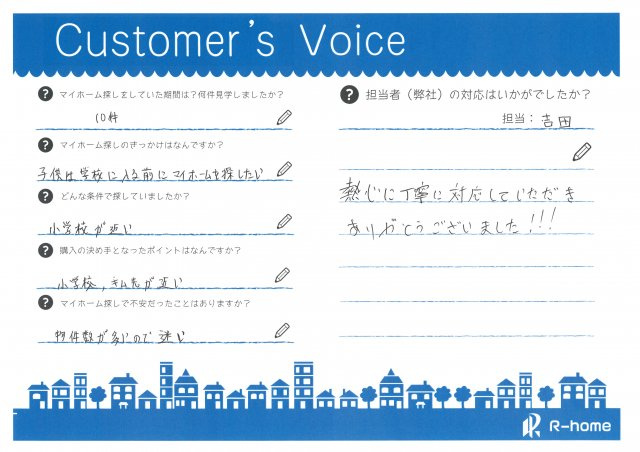 Customer's Voice
? マイホーム探しをしていた期間は？何件見学しましたか？
10件
? マイホーム探しのきっかけはなんですか？
子供は学校に入る前にマイホームを探したい
? どんな条件で探していましたか？
小学校が近い
? 購入の決め手となったポイントはなんですか？
小学校，が近い
? マイホーム探しで不安だったことはありますか？
物件数が多いので迷い
? 担当者（弊社）の対応はいかがでしたか？
担当：吉田
熱心に丁寧に対応していただき
ありがとうございました!!!
R-home